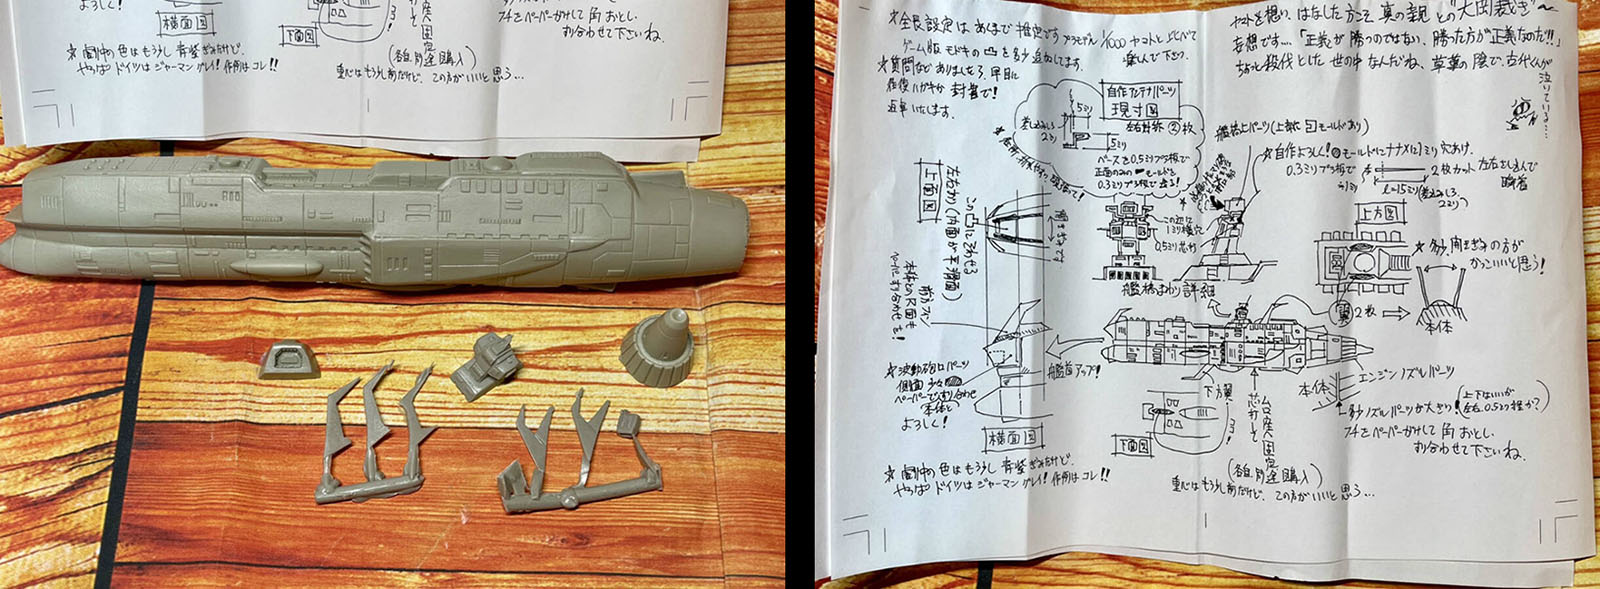 よろしく!
横面図
下面図
(各自、別途購入)
プチをペーパーがけして角おとし、
すり合わせて下さいね。
★劇中の色はもう少し青紫ぎみだけど、
やっぱドイツはジャーマングレイ!作例はコレ!!
重心はもう少し前だけど、この方がいいと思う…
★全長設定はあくまで推定です。プラモデル1/1000ヤマトと比べて
遊んで下さい。
★質問などありましたら、早目に
往復ハガキか封書で!
返事いたします。
ヤマトを想い、はなした方こそ真の親との"大岡裁き"〜
妄想です…。「正義が勝つのではない、勝った方が正義なのだ!!」
ちょっと殺伐とした世の中なんだね、草葉の陰で、古代くんが
泣いている…
自作アンテナパーツ
現寸図
左右対称②枚
5ミリ
差し込みしろ
2ミリ
5ミリ
ベースを0.5ミリプラ板で
正面のみのモールドを
0.3ミリプラ板で造る!
艦橋上パーツ(上部にコモールドあり)
★自作よろしく!モールドにナナメに1ミリ穴あけ。
0.3ミリプラ板で
2枚カット
左右さし込んで
瞬着
上面図
この辺に
1ミリ横穴
0.5ミリ芯打ち
艦橋まわり詳細
上方図
★多少開きぎみの方が
かっこいいと思う!
翼2枚
本体
艦首アップ!
★波動砲口パーツ
側面少々
ペーパーですり合わせ
(本体と)
よろしく!
横面図
下面図
下方翼
エンジンノズルパーツ
本体
多少ノズルパーツが大きい!
(上下はいいが
左右0.5ミリ程か?)
プチをペーパーがけして角おとし、
すり合わせて下さいね。
(各自、別途購入)
★劇中の色はもう少し青紫ぎみだけど、
やっぱドイツはジャーマングレイ!作例はコレ!!
重心はもう少し前だけど、この方がいいと思う…